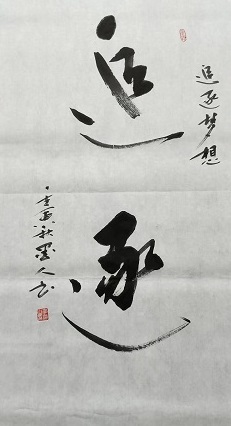 追逐梦想
追
逐
壬寅秋墨人书